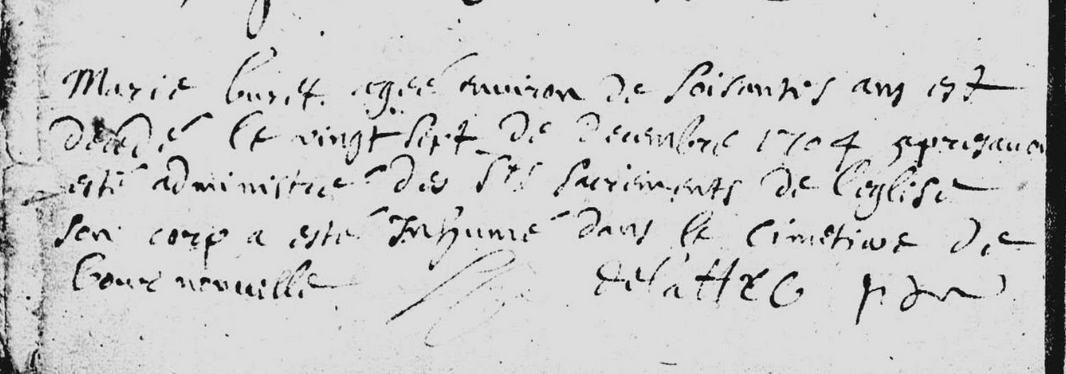 Marie buret agéé environ de soisantes ans est
decedé le vingt sept de decembre 1704 apres avoi
esté administré des Sts sacrements de l'eglise
son corp a esté Inhumé dans le cimetiere de
bournonuille delattre